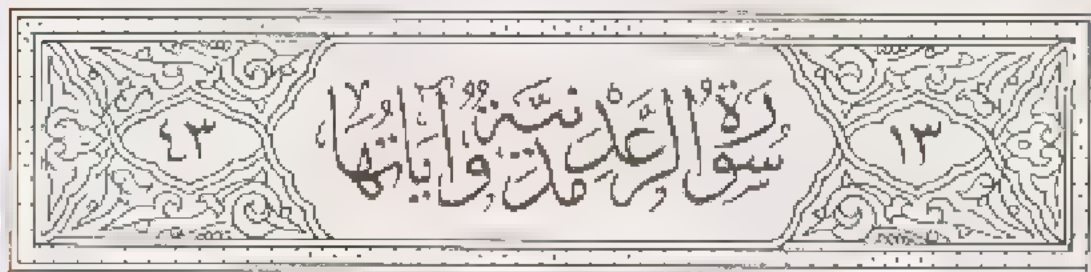 ١٣
سُورَةُ الرَّعْدِ مَدَنِيَّةٌ وَآيَاتُهَا
٤٣